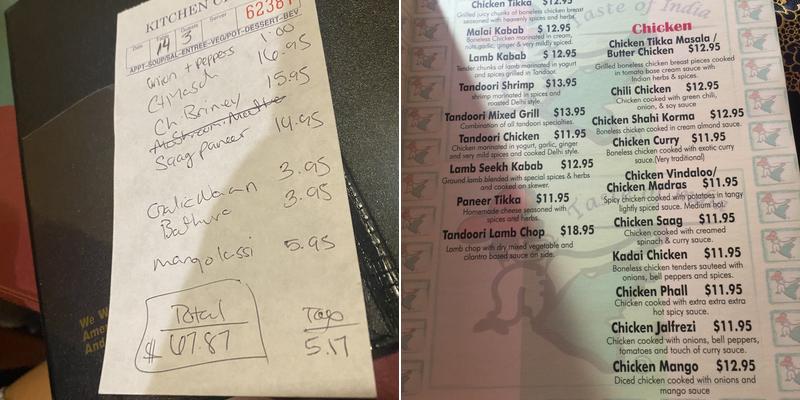 KITCHEN
62387
Date
Table
Guests
Server
14
3
APPT-SOUP/SAL-ENTREE-VEG/POT-DESSERT-BEV
onion + peppers 1.00
16.95
Ch. Briney 15.95
Saag paneer 14.95
Garlic Naan 3.95
Bathura 3.95
mango lassi 5.95
Total
$ 67.87
5.17
We W
Amer
And
Taste of India
Chicken Tikka $12.95
Grilled juicy chunks of boneless chicken breast
seasoned with heavenly spices and herbs
Malai Kabab $ 12.95
Boneless Chicken marinated in cream,
nuts,garlic, ginger & very mildly spiced.
Lamb Kabab $ 12.95
Tender chunks of lamb marinated in yogurt
and spices grilled in Tandoor.
Tandoori Shrimp $13.95
shrimp marinated in spices and
roasted Delhi style.
Tandoori Mixed Grill $13.95
Combination of all tandoori specialties.
Tandoori Chicken $11.95
Chicken marinated in yogurt, garlic, ginger
and very mild spices and cooked Delhi style.
Lamb Seekh Kabab $12.95
Ground lamb blended with special spices & herbs
and cooked on skewer.
Paneer Tikka $11.95
Homemade cheese seasoned with
spices and herbs.
Tandoori Lamb Chop $18.95
Lamb chop with dry mixed vegetable and
cilantro based sauce on side.
Chicken
Chicken Tikka Masala /
Butter Chicken $12.95
Grilled boneless chicken breast pieces cooked
in tomato base cream sauce with
Indian herbs & spices.
Chili Chicken $12.95
Chicken cooked with green chili,
onion, & soy sauce
Chicken Shahi Korma $12.95
Boneless chicken cooked in cream almond sauce.
Chicken Curry $11.95
Boneless chicken cooked with exotic curry
sauce.(Very traditional)
Chicken Vindaloo/
Chicken Madras $11.95
Spicy chicken cooked with potatoes in tangy
lightly spiced sauce. Medium hot.
Chicken Saag $11.95
Chicken cooked with creamed
spinach & curry sauce.
Kadai Chicken $11.95
Boneless chicken tenders sauteed with
onions, bell peppers and spices.
Chicken Phall $11.95
Chicken cooked with extra extra extra
hot spicy sauce.
Chicken Jalfrezi $11.95
Chicken cooked with onions, bell peppers,
tomatoes and touch of curry sauce.
Chicken Mango $12.95
Diced chicken cooked with onions and
mango sauce